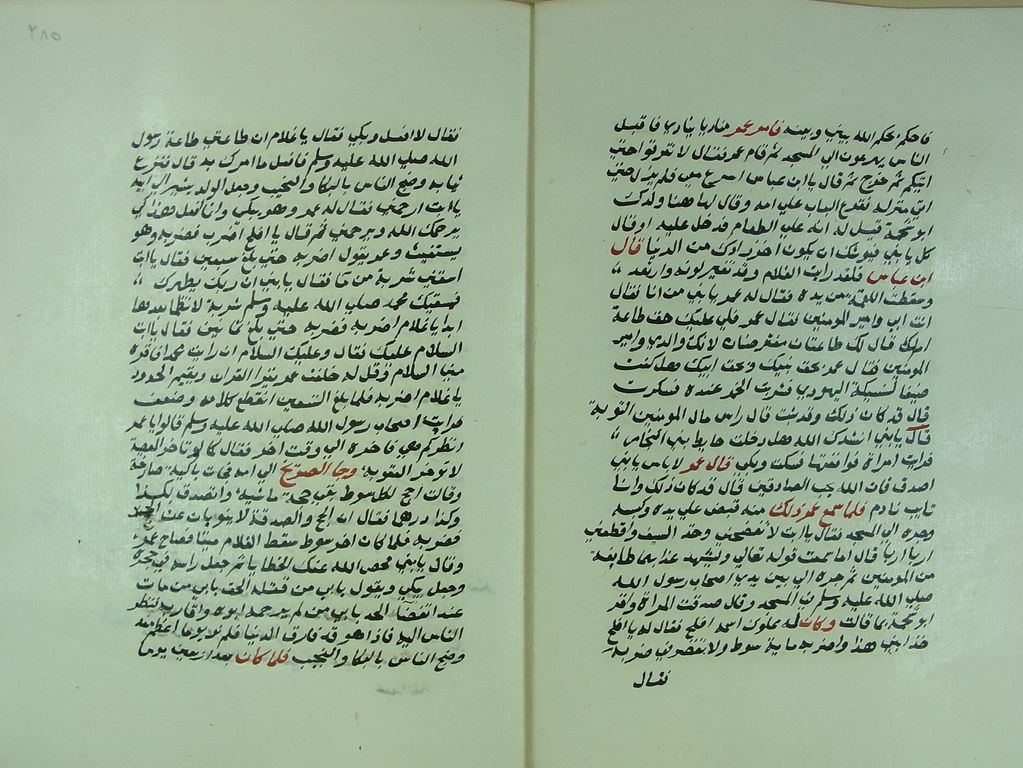 فاحكم بحكم الله بيني وبينه فامر عمر مناديا ينادي فاقبل
الناس يهرعون الي المسجد ثم قام عمر فقال لا تفرقوا حتي
اتيكم ثم خرج ثم قال يا ابن عباس اسرع معي فلم يزل حتي
اتي منزله فقرع الباب علي امه وقال لها ههنا ولدك
ابو شحمة قيل له انه علي الطعام فدخل عليه وقال
كل يا بني فيوشك ان يكون اخر زادك من الدنيا قال
ابن عباس فلقد رايت الغلام وقد تغير لونه وارتعد
وسقطت اللقمة من يده فقال له عمر يا بني من انا فقال
انت ابي وامير المومنين فقال عمر فلي عليك حق طاعة
ام لا قال لك طاعتان مفترضتان لانك والدي وامير
المومنين فقال عمر بحق نبيك وبحق ابيك هل كنت
ضيفا لنسيكة اليهودي فشربت الخمر عنده فسكرت
قال قد كان ذلك وقد تبت قال راس مال المومنين التوبة
قال يا بني انشدك الله هل دخلت حايط بني النجار
فرايت امراة فواقعتها فسكت وبكي قال عمر لا باس يا بني
اصدق فان الله يحب الصادقين قال قد كان ذلك وانا
تايب نادم فلما سمع عمر ذلك منه قبض علي يده ولببه
وجره الي المسجد فقال يا ابت لا تفضحني وخذ السيف واقطعني
اربا اربا قال اما سمعت قوله تعالي وليشهد عذابهما طايفة
من المومنين ثم جره الي بين يدي اصحاب رسول الله
صلي الله عليه وسلم في المسجد وقال صدقت المراة واقر
ابو شحمة بما قالت وكان له مملوك اسمه افلح فقال له يا افلح
خذ ابني هذا واضربه ماية سوط ولا تقصر في ضربه
فقال
٢٨٥
فقال لا افعل وبكي فقال يا غلام ان طاعتي طاعة رسول
الله صلي الله عليه وسلم فافعل ما امرك به قال فنزع
ثيابه وضج الناس بالبكا والنحيب وجعل الولد يشير الي ابيه
يا ابت ارحمني فقال له عمر وهو يبكي وانا افعل هذا كي
يرحمك الله ويرحمني ثم قال يا افلح اضرب فضربه وهو
يستغيث وعمر يقول اضربه حتي بلغ سبعين فقال يا ابت
اسقني شربة من ما فقال يا بني ان ربك يطهرك
فيسقيك محمد صلي الله عليه وسلم شربة لا تظما بعدها
ابدا يا غلام اضربه فضربه حتي بلغ ثمانين فقال يا ابت
السلام عليك فقال وعليك السلام ان رايت محمدا فاقره
مني السلام وقل له خلفت عمر يقرا القران ويقيم الحدود
يا غلام اضربه فلما بلغ التسعين انقطع كلامه وضعف
فراي اصحاب رسول الله صلي الله عليه وسلم قالوا يا عمر
انظر كم بقي فاخره الي وقت اخر فقال كما لم تاخر المعصية
لا توخر العقوبة وجا الصريخ الي امه فجات باكية صارخة
وقالت احج بكل سوط حجة ماشية واتصدق بكذا
وكذا درهم فقال ان الحج والصدقة لا ينوبان عن الحد
فضربه فلما كان اخر سوط سقط الغلام ميتا فصاح عمر
وقال يا بني محص الله عنك الخطايا ثم جعل راسه في حجره
وجعل يبكي ويقول بابي من قتله الحق بابي من مات
عند انقضا الحد بابي من لم يرحمه ابوه واقاربه فنظر
الناس اليه فاذا هو قد فارق الدنيا فلم نر يوما اعظم منه
وضج الناس بالبكا والنحيب فلما كان بعد اربعين يوما